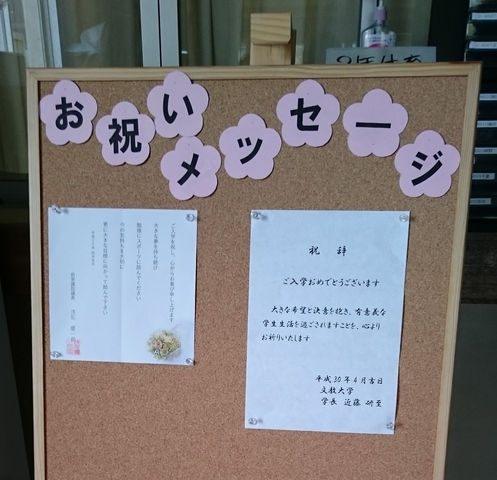 お祝いメッセージ
ご入学を祝し、心からお喜び申し上げます
大きな夢を持ち続け
勉強にスポーツに励んでください
今の気持ちを大切に
更に大きな目標に向かって励んで下さい
祝辞
ご入学おめでとうございます
大きな希望と決意を抱き、有意義な
学生生活を過ごされますことを、心より
お祈りいたします
平成30年4月吉日
文教大学
学長 近藤 研至